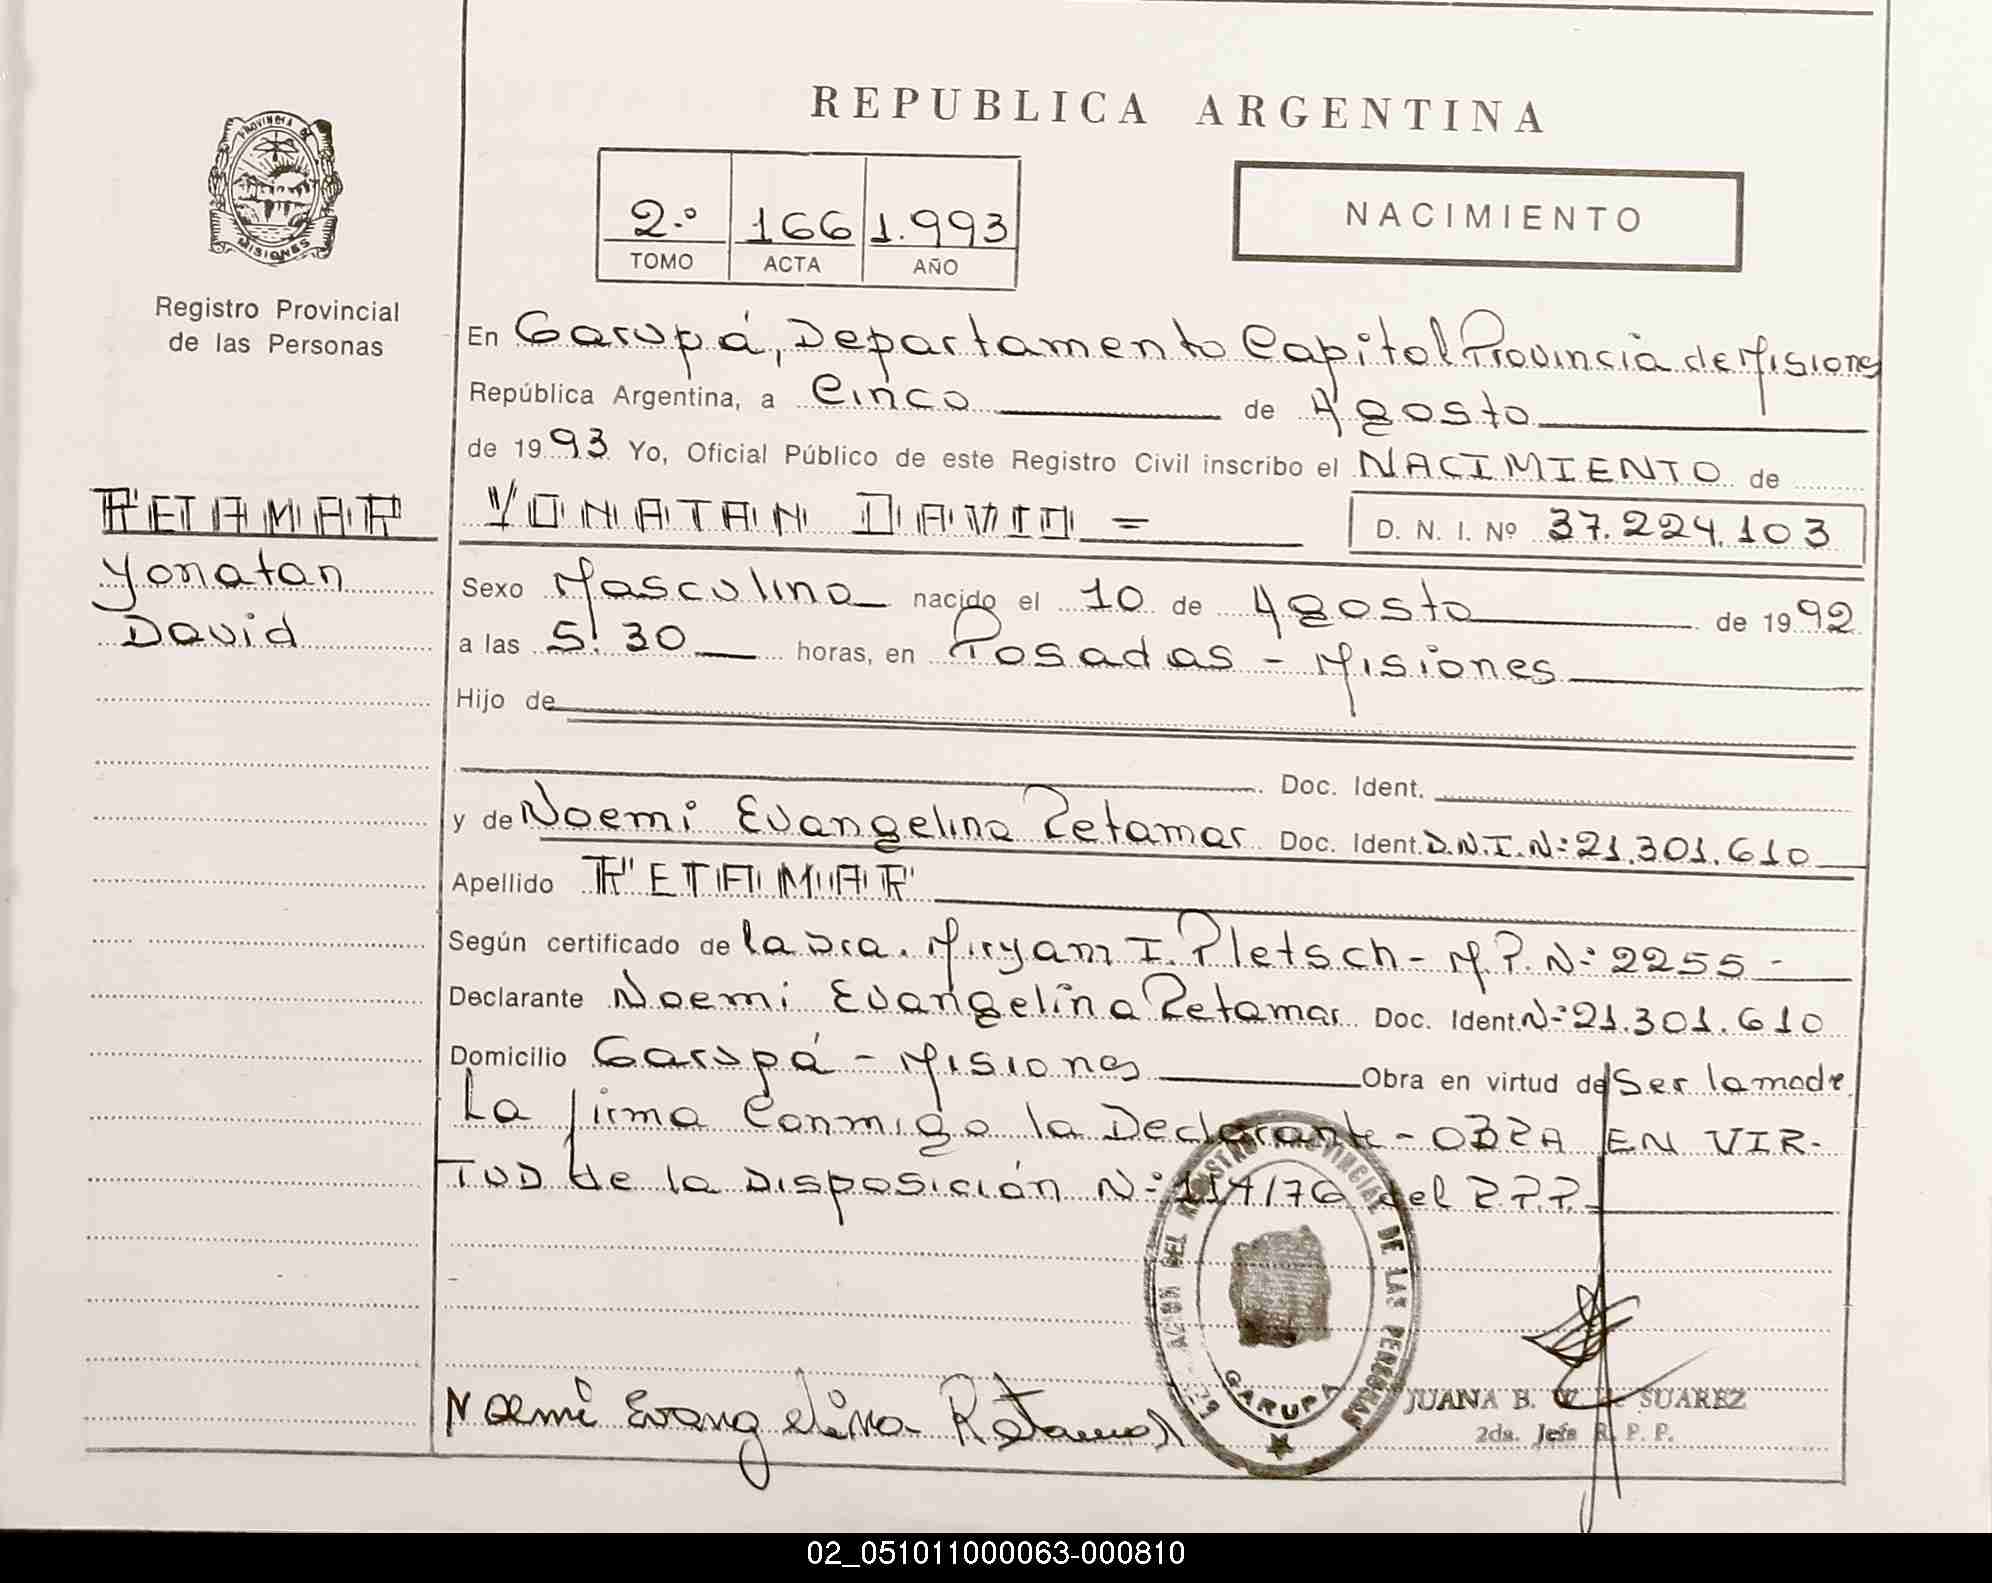 REPUBLICA ARGENTINA
PROVINCIA DE
MISIONES
Registro Provincial
de las Personas
2.º 166 1.993
TOMO ACTA AÑO
NACIMIENTO
En Garupá, Departamento Capital Provincia de Misiones
República Argentina, a Cinco de Agosto
de 1993 Yo, Oficial Público de este Registro Civil inscribo el NACIMIENTO de
RETAMAR
Yonatan
David
YONATAN DAVID = D. N. I. Nº 37.224.103
Sexo Masculino nacido el 10 de Agosto de 1992
a las 5.30 horas, en Posadas - Misiones
Hijo de
Doc. Ident.
y de Noemi Evangelina Retamar Doc. Ident. D.N.I.N: 21.301.610
Apellido RETAMAR
Según certificado de la Dra. Miryam I. Pletsch - M.P. Nº 2255 -
Declarante Noemi Evangelina Retamar Doc. Ident. Nº 21.301.610
Domicilio Garupá - Misiones Obra en virtud de Ser la madre
La firma Conmigo la Declarante - OBRA EN VIR-
TUD de la Disposición Nº 114/76 del R.P.P.
DEL REGISTRO PROVINCIAL DE LAS PERSONAS
GARUPA
Noemi Evangelina Retamar
JUANA B. SUAREZ
2da. Jefa R. P. P.
02_051011000063-000810